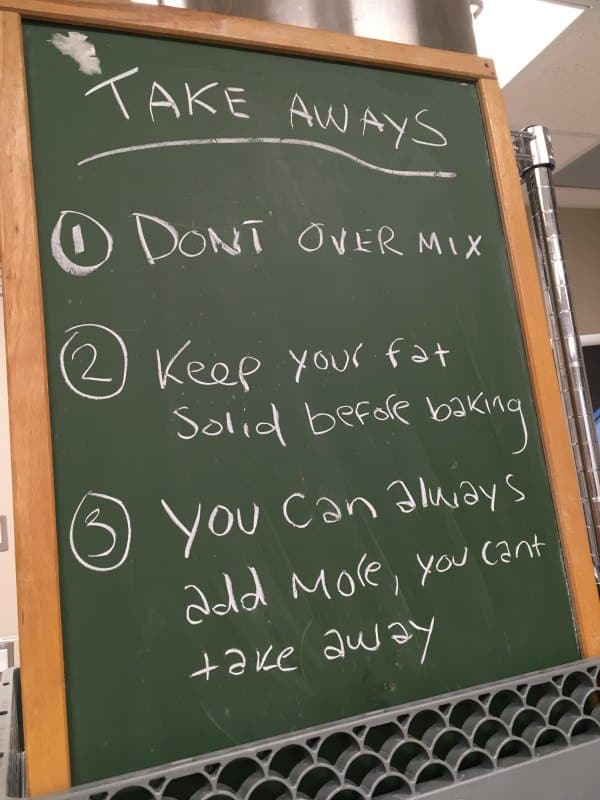 TAKE AWAYS
1 DONT OVER MIX
2 Keep your fat
Solid before baking
3 You can always
add More, you cant
take away